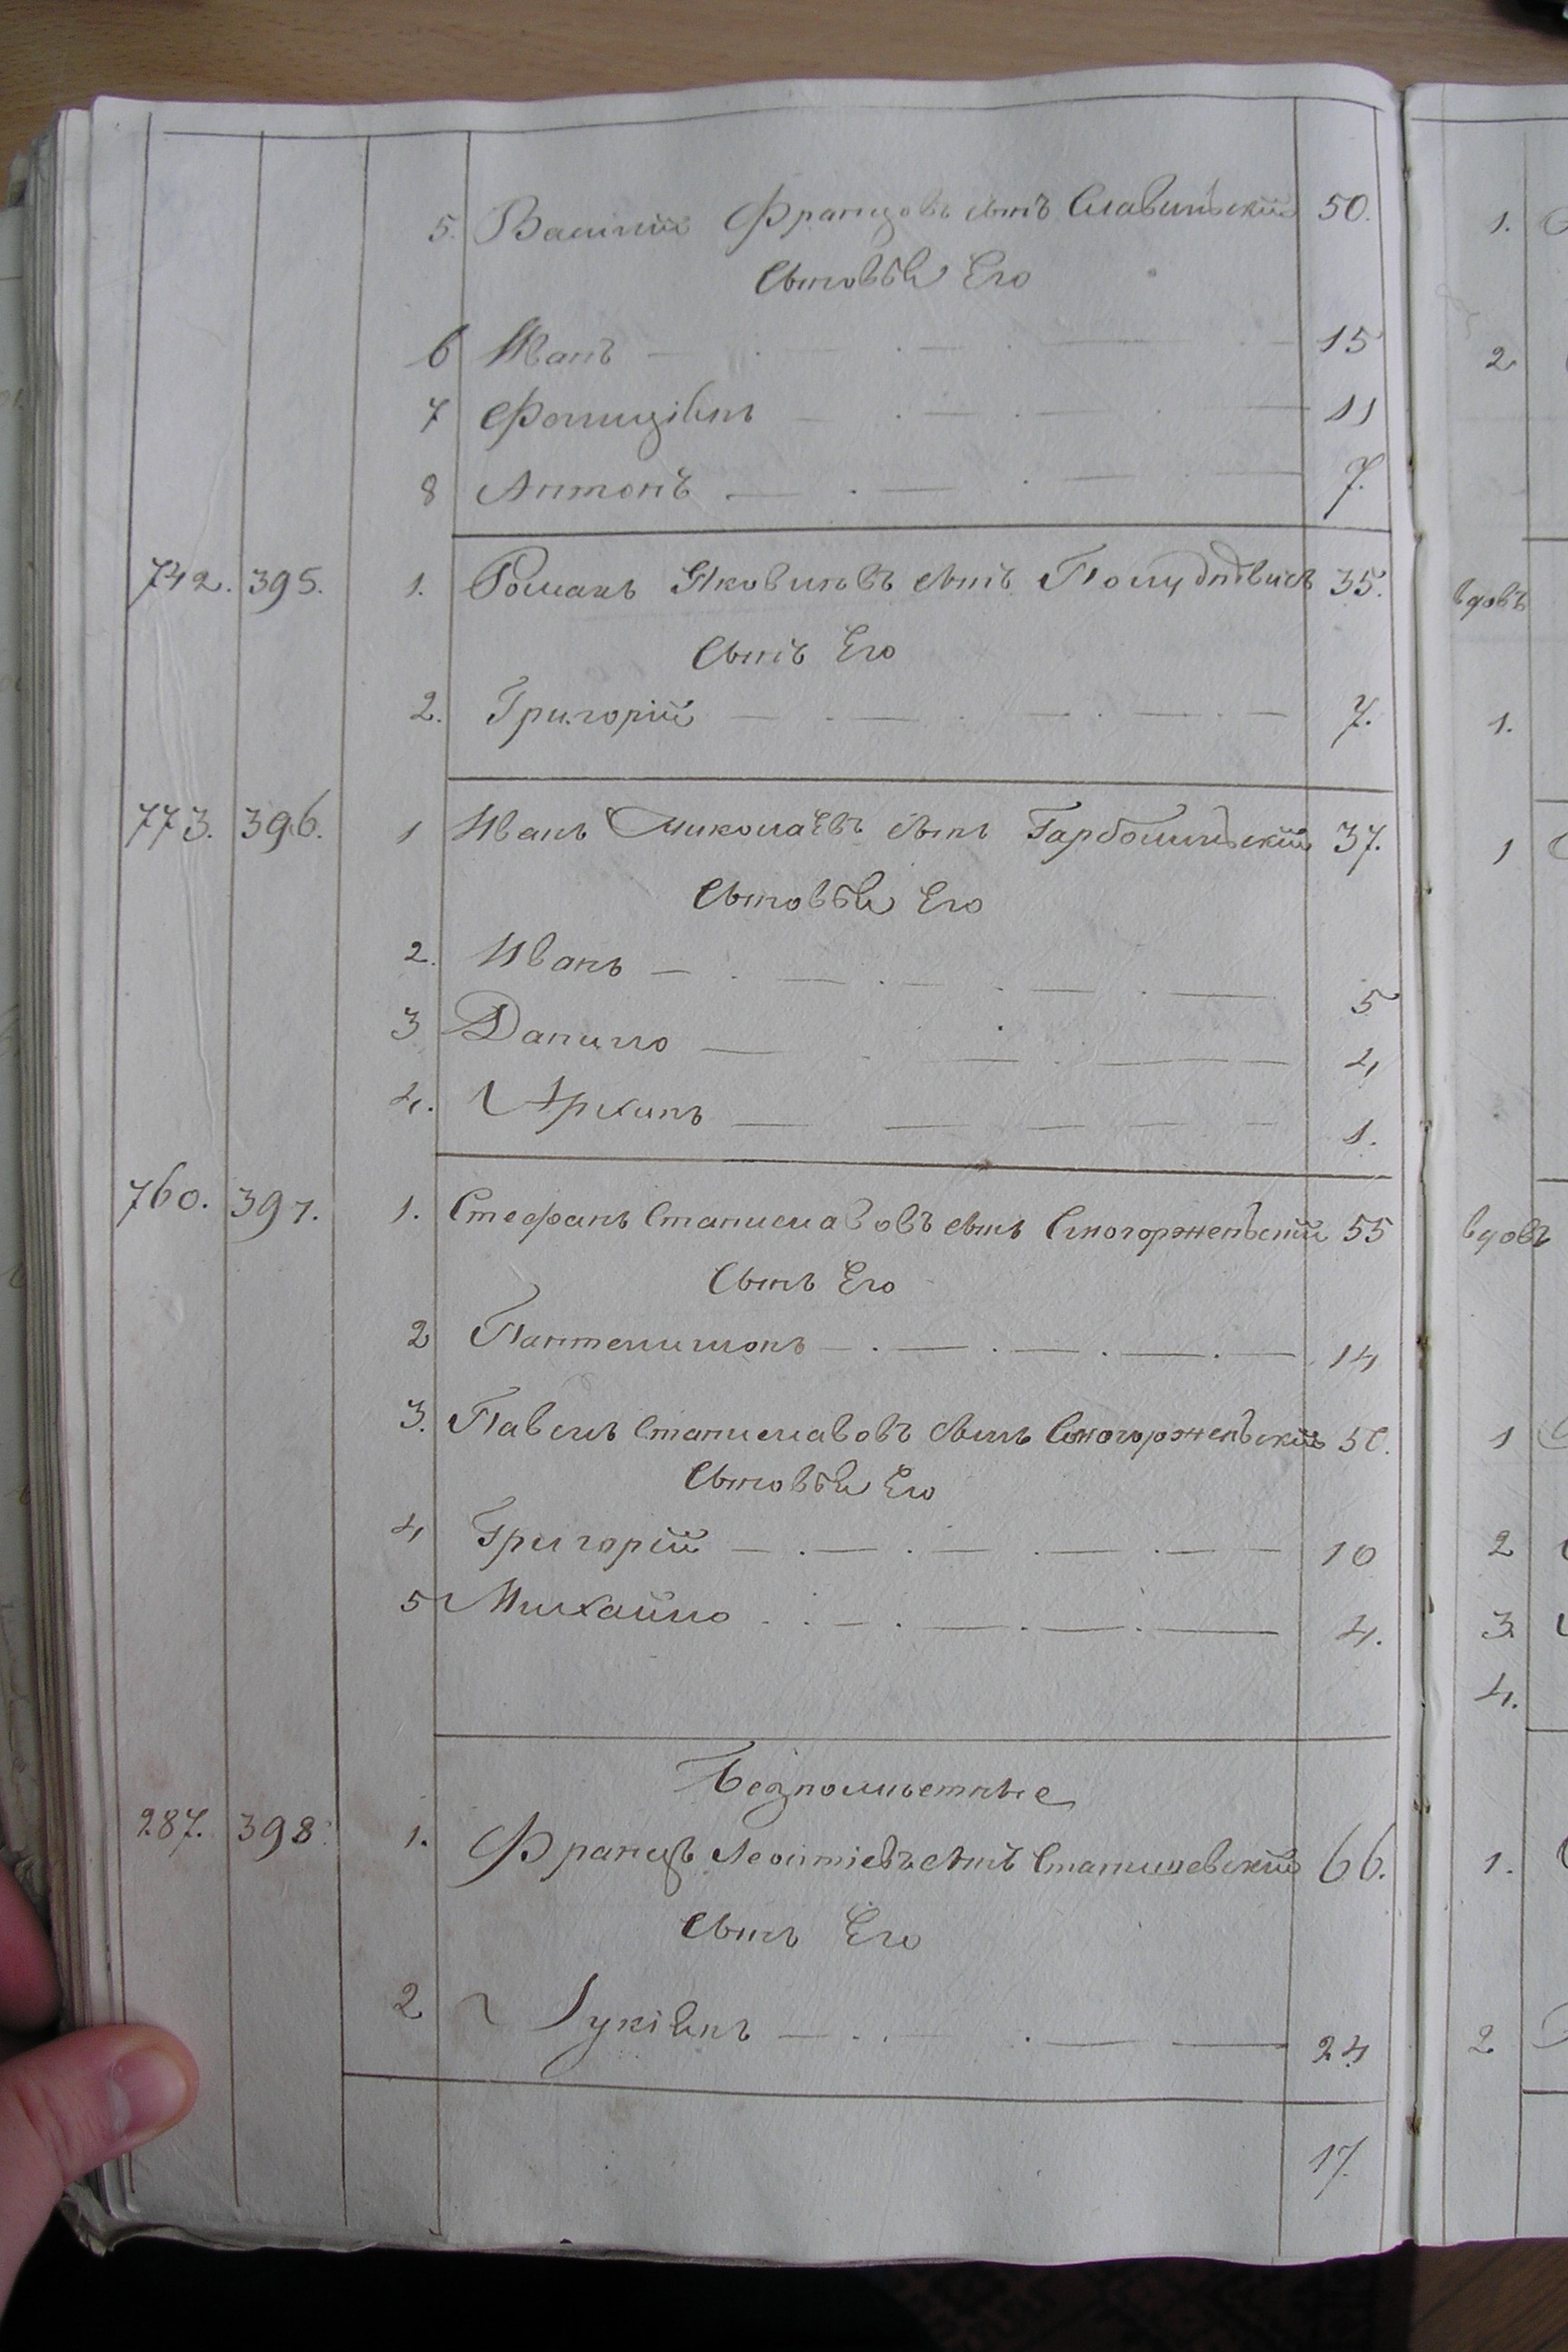 5. Василий Францовъ сынъ Славинский 50.
Сыновья Его
6 Иванъ 15
7 Фелициянъ 11
8 Антонъ 7.
742. 395. 1. Романъ Яковлевъ сынъ 35.
Сынъ Его
2. Григорій 7.
773. 396. 1 Иванъ Миколаевъ сынъ Гарболинский 37.
Сыновья Его
2. Иванъ 5
3 Данило 4
4. Архипъ 1.
760. 397. 1. Стефанъ Станиславовъ сынъ Смогорженский 55
Сынъ Его
2 Пантелимонъ 14
3. Павелъ Станиславовъ сынъ Смогорженский 50.
Сыновья Его
4 Григорій 10
5 Михайло 4.
Безпоместные
287. 398. 1. Францъ Леонтіевъ сынъ Станишевский 66.
Сынъ Его
2 Лукіянъ 24
17.
1.
2
вдовъ
1.
1
вдовъ
1
2
3.
4.
1.
2